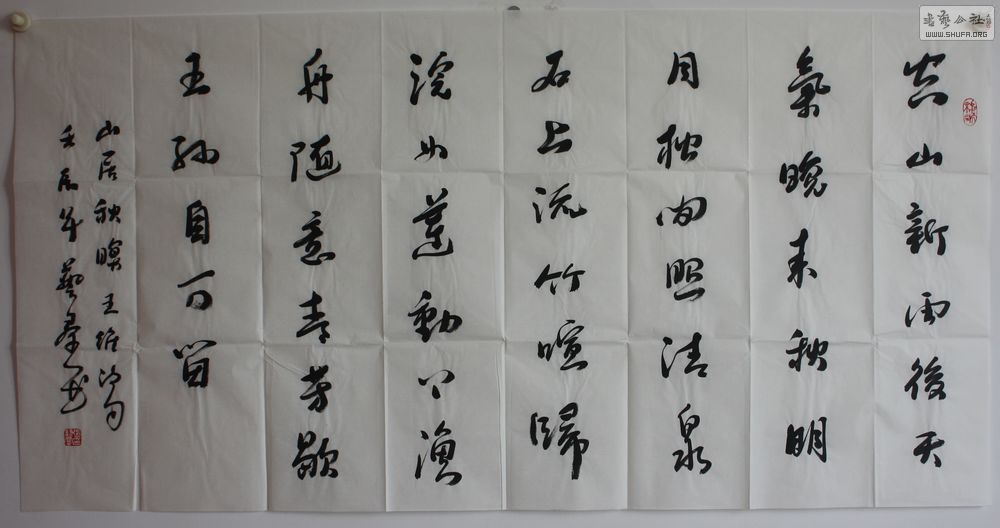 空山新雨後天
氣晚来秋明
月松间照清泉
石上流竹喧歸
浣女蓮動下漁
舟随意春芳歇
王孫自可留
山居秋暝王維诗句
壬辰年藝群书
书艺公社
WWW.SHUFA.ORG